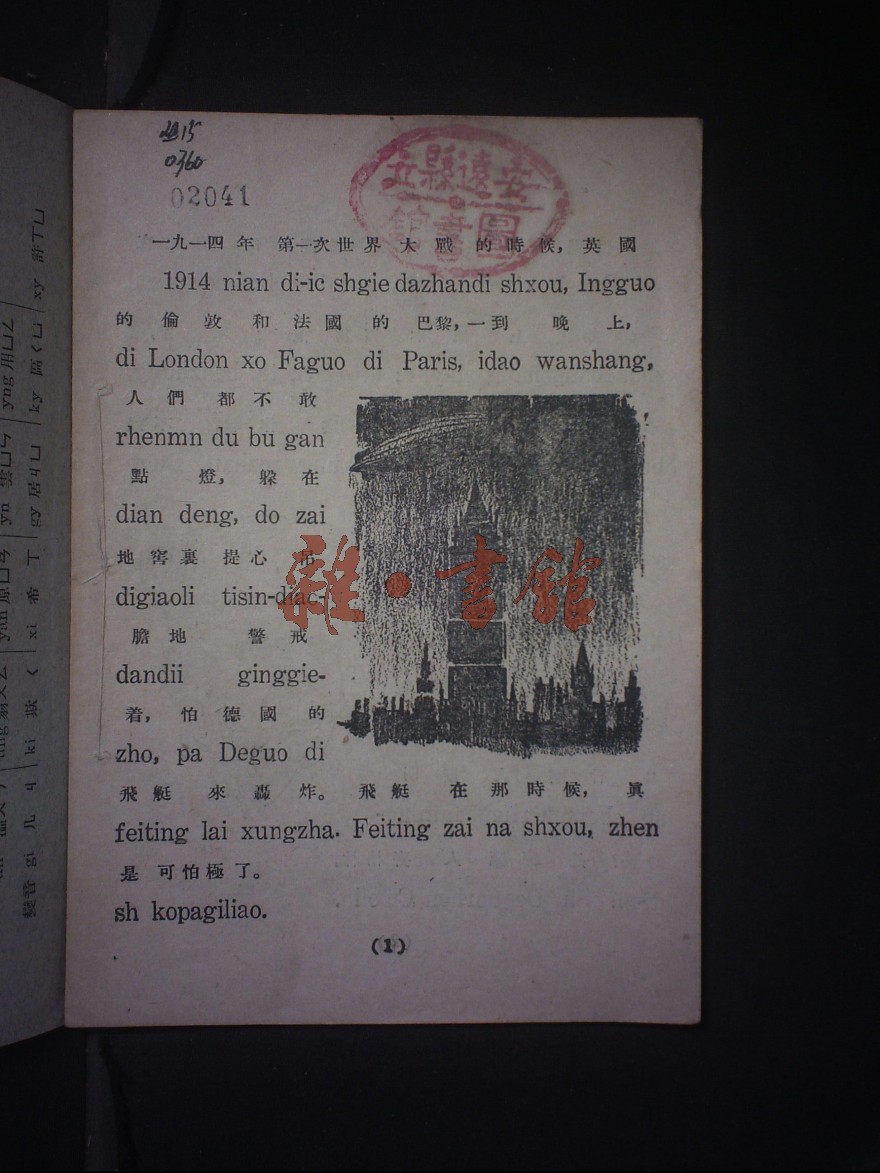 0360
02041
立縣遠安
館書圖
一九一四年 第一次世界大戰的時候,英國
1914 nian di-ic shgie dazhandi shxou, Ingguo
的倫敦和法國的巴黎,一到晚上,
di London xo Faguo di Paris, idao wanshang,
人們都不敢
rhenmn du bu gan
點燈,躲在
dian deng, do zai
地窖裏提心吊
digiaoli tisin-diac-
膽地警戒
dandii ginggie-
着,怕德國的
zho, pa Deguo di
飛艇來轟炸。飛艇在那時候,眞
feiting lai xungzha. Feiting zai na shxou, zhen
是可怕極了。
sh kopagiliao.
(1)
雜·書館
變音 gi 几ㄐ ki 欺ㄑ xi 希ㄒ gy 居ㄐㄩ ky 區ㄑㄩ xy 許ㄒㄩ